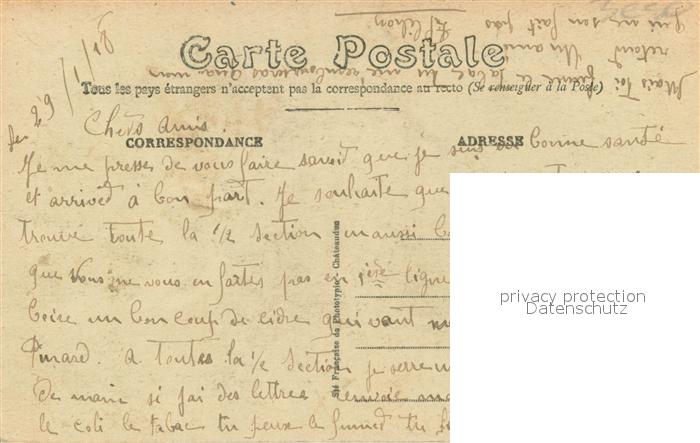 Carte Postale
Tous les pays étrangers n'acceptent pas la correspondance au recto (Se renseigner à la Poste)
29/1/18
Chers amis
CORRESPONDANCE
ADRESSE
Je me presse de vous faire savoir que je suis en bonne santé
et arrived à bon part. Je souhaite que
trouve toute la 1/2 section en aussi
que vous ne vous en faites pas en 1ère ligne
boire un bon coup de cidre qui vaut
Pinard. a toutes la 1/2 section je serre
de main si jai des lettres renvoie
le coli le tabac tu peux le fumed tu
Mais toi fume le tabac tu me rembourseras a
retour Un ami
qui ne sen fait pas
Sté Française de Phototypie - Châteaudun
privacy protection
Datenschutz